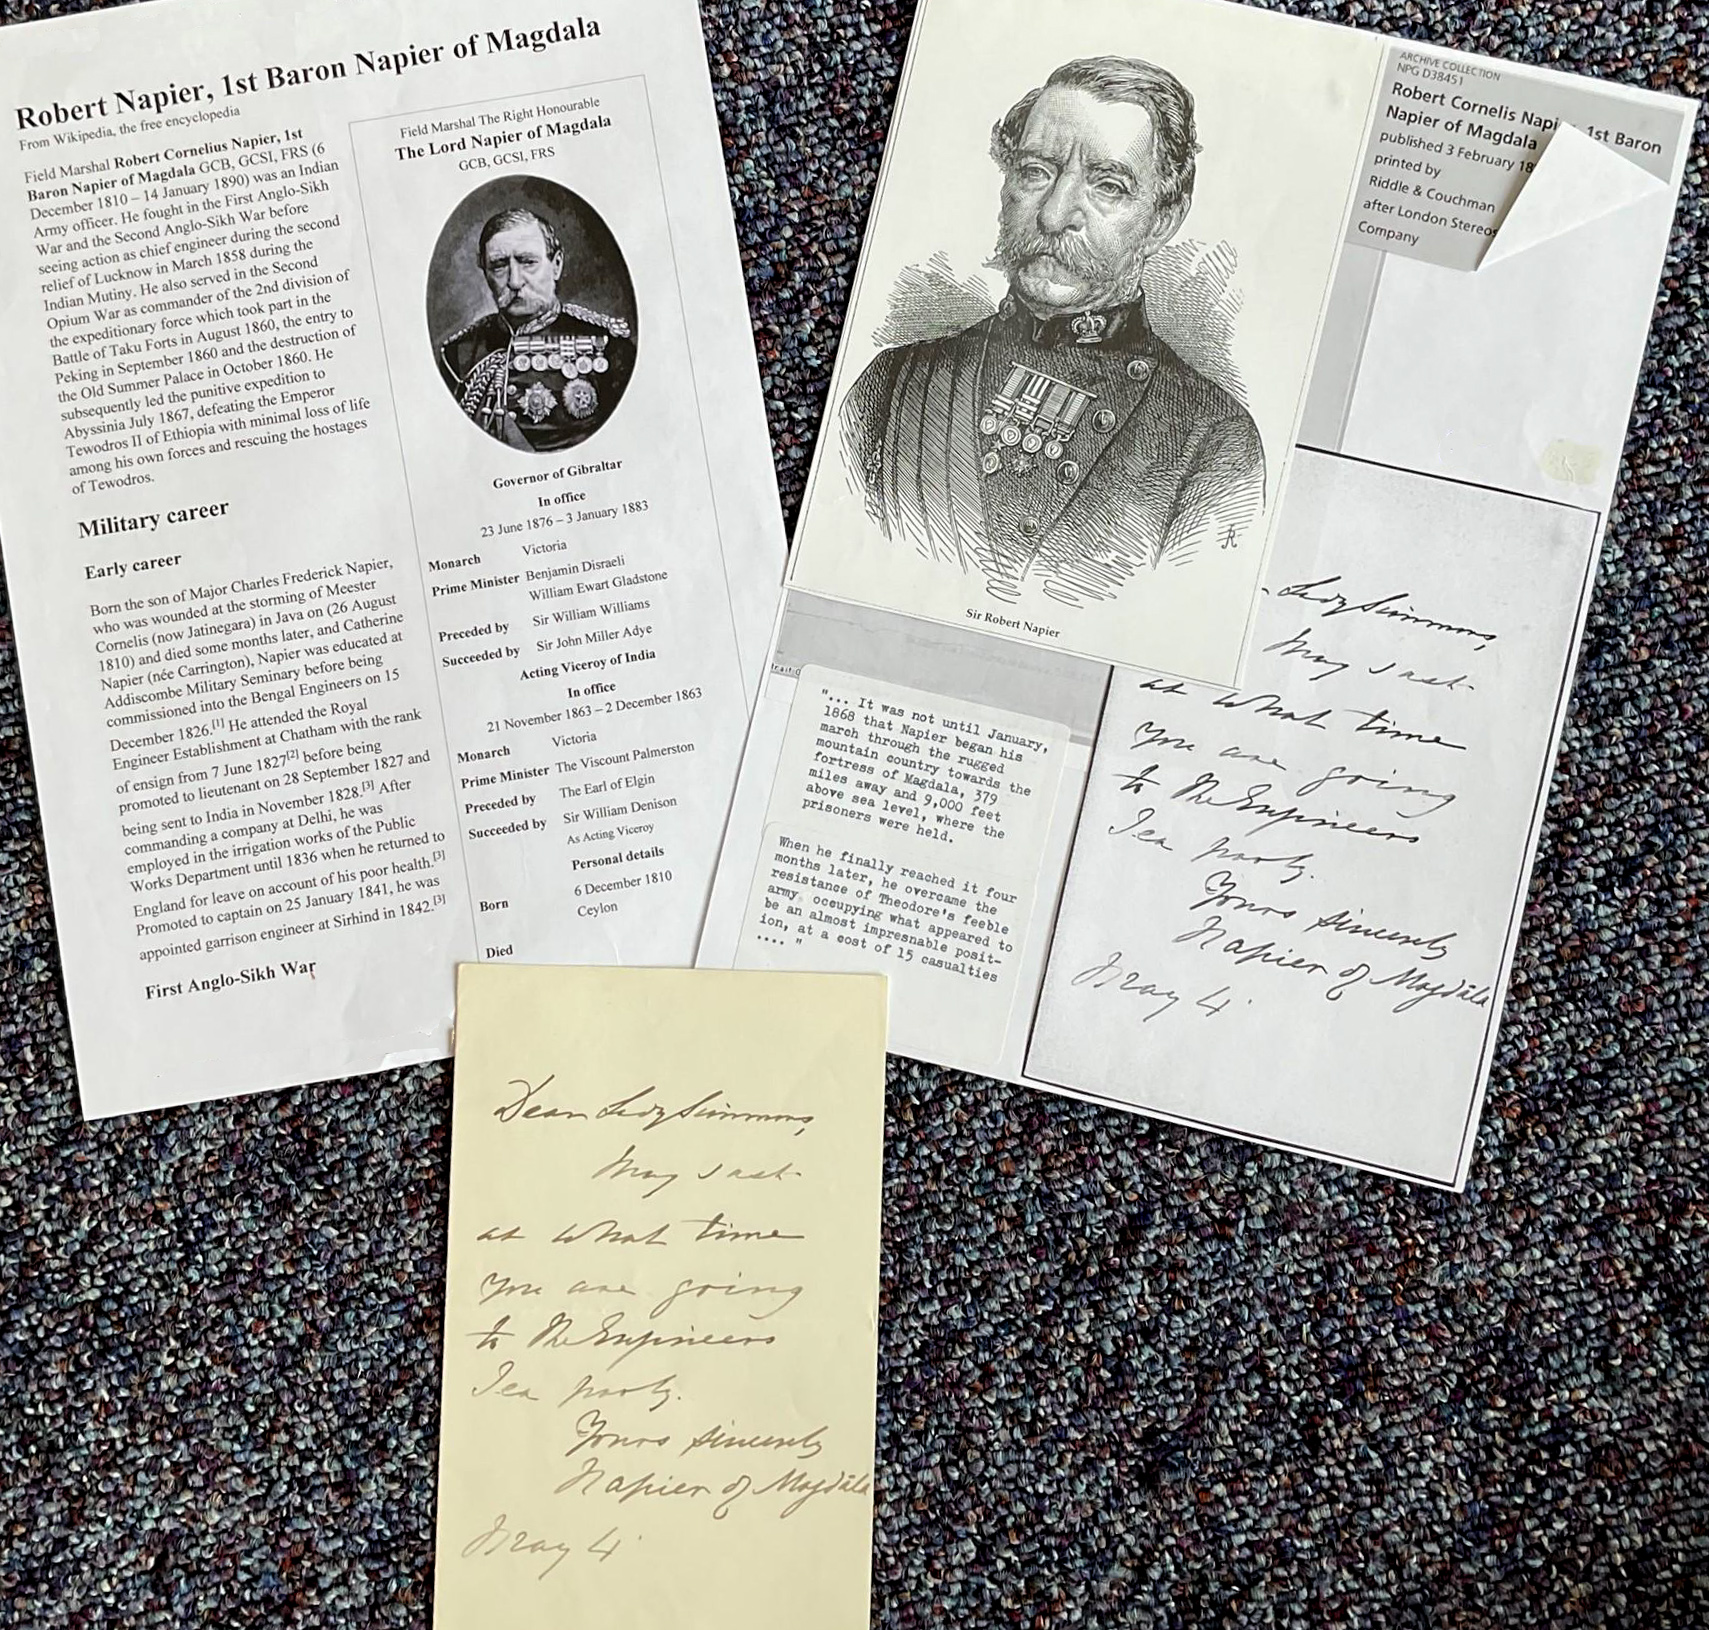 Robert Napier, 1st Baron Napier of Magdala
From Wikipedia, the free encyclopedia
Field Marshal Robert Cornelius Napier, 1st
Baron Napier of Magdala GCB, GCSI, FRS (6
December 1810 – 14 January 1890) was an Indian
Army officer. He fought in the First Anglo-Sikh
War and the Second Anglo-Sikh War before
seeing action as chief engineer during the second
relief of Lucknow in March 1858 during the
Indian Mutiny. He also served in the Second
Opium War as commander of the 2nd division of
the expeditionary force which took part in the
Battle of Taku Forts in August 1860, the entry to
Peking in September 1860 and the destruction of
the Old Summer Palace in October 1860. He
subsequently led the punitive expedition to
Abyssinia July 1867, defeating the Emperor
Tewodros II of Ethiopia with minimal loss of life
among his own forces and rescuing the hostages
of Tewodros.
Military career
Early career
Born the son of Major Charles Frederick Napier,
who was wounded at the storming of Meester
Cornelis (now Jatinegara) in Java on (26 August
1810) and died some months later, and Catherine
Napier (née Carrington), Napier was educated at
Addiscombe Military Seminary before being
commissioned into the Bengal Engineers on 15
December 1826.[1] He attended the Royal
Engineer Establishment at Chatham with the rank
of ensign from 7 June 1827[2] before being
promoted to lieutenant on 28 September 1827 and
being sent to India in November 1828.[3] After
commanding a company at Delhi, he was
employed in the irrigation works of the Public
Works Department until 1836 when he returned to
England for leave on account of his poor health.[3]
Promoted to captain on 25 January 1841, he was
appointed garrison engineer at Sirhind in 1842.[3]
First Anglo-Sikh War
Field Marshal The Right Honourable
The Lord Napier of Magdala
GCB, GCSI, FRS
Governor of Gibraltar
In office
23 June 1876 – 3 January 1883
Monarch Victoria
Prime Minister Benjamin Disraeli
William Ewart Gladstone
Preceded by Sir William Williams
Succeeded by Sir John Miller Adye
Acting Viceroy of India
In office
21 November 1863 – 2 December 1863
Monarch Victoria
Prime Minister The Viscount Palmerston
Preceded by The Earl of Elgin
Succeeded by Sir William Denison
As Acting Viceroy
Personal details
Born 6 December 1810
Ceylon
Died
Sir Robert Napier
ARCHIVE COLLECTION
NPG D38451
Robert Cornelis Napi 1st Baron
Napier of Magdala
published 3 February 18
printed by
Riddle & Couchman
after London Stereos
Company
"... It was not until January,
1868 that Napier began his
march through the rugged
mountain country towards the
fortress of Magdala, 379
miles away and 9,000 feet
above sea level, where the
prisoners were held.
When he finally reached it four
months later, he overcame the
resistance of Theodore's feeble
army occupying what appeared to
be an almost impresnable posit-
ion, at a cost of 15 casualties
.... "
Lady Simmons,
May I ask
at what time
you are going
to the Engineers
Tea party.
Yours sincerely
Napier of Magdala
May 4
Dear Lady Simmons,
May I ask
at what time
you are going
to the Engineers
Tea party.
Yours sincerely
Napier of Magdala
May 4